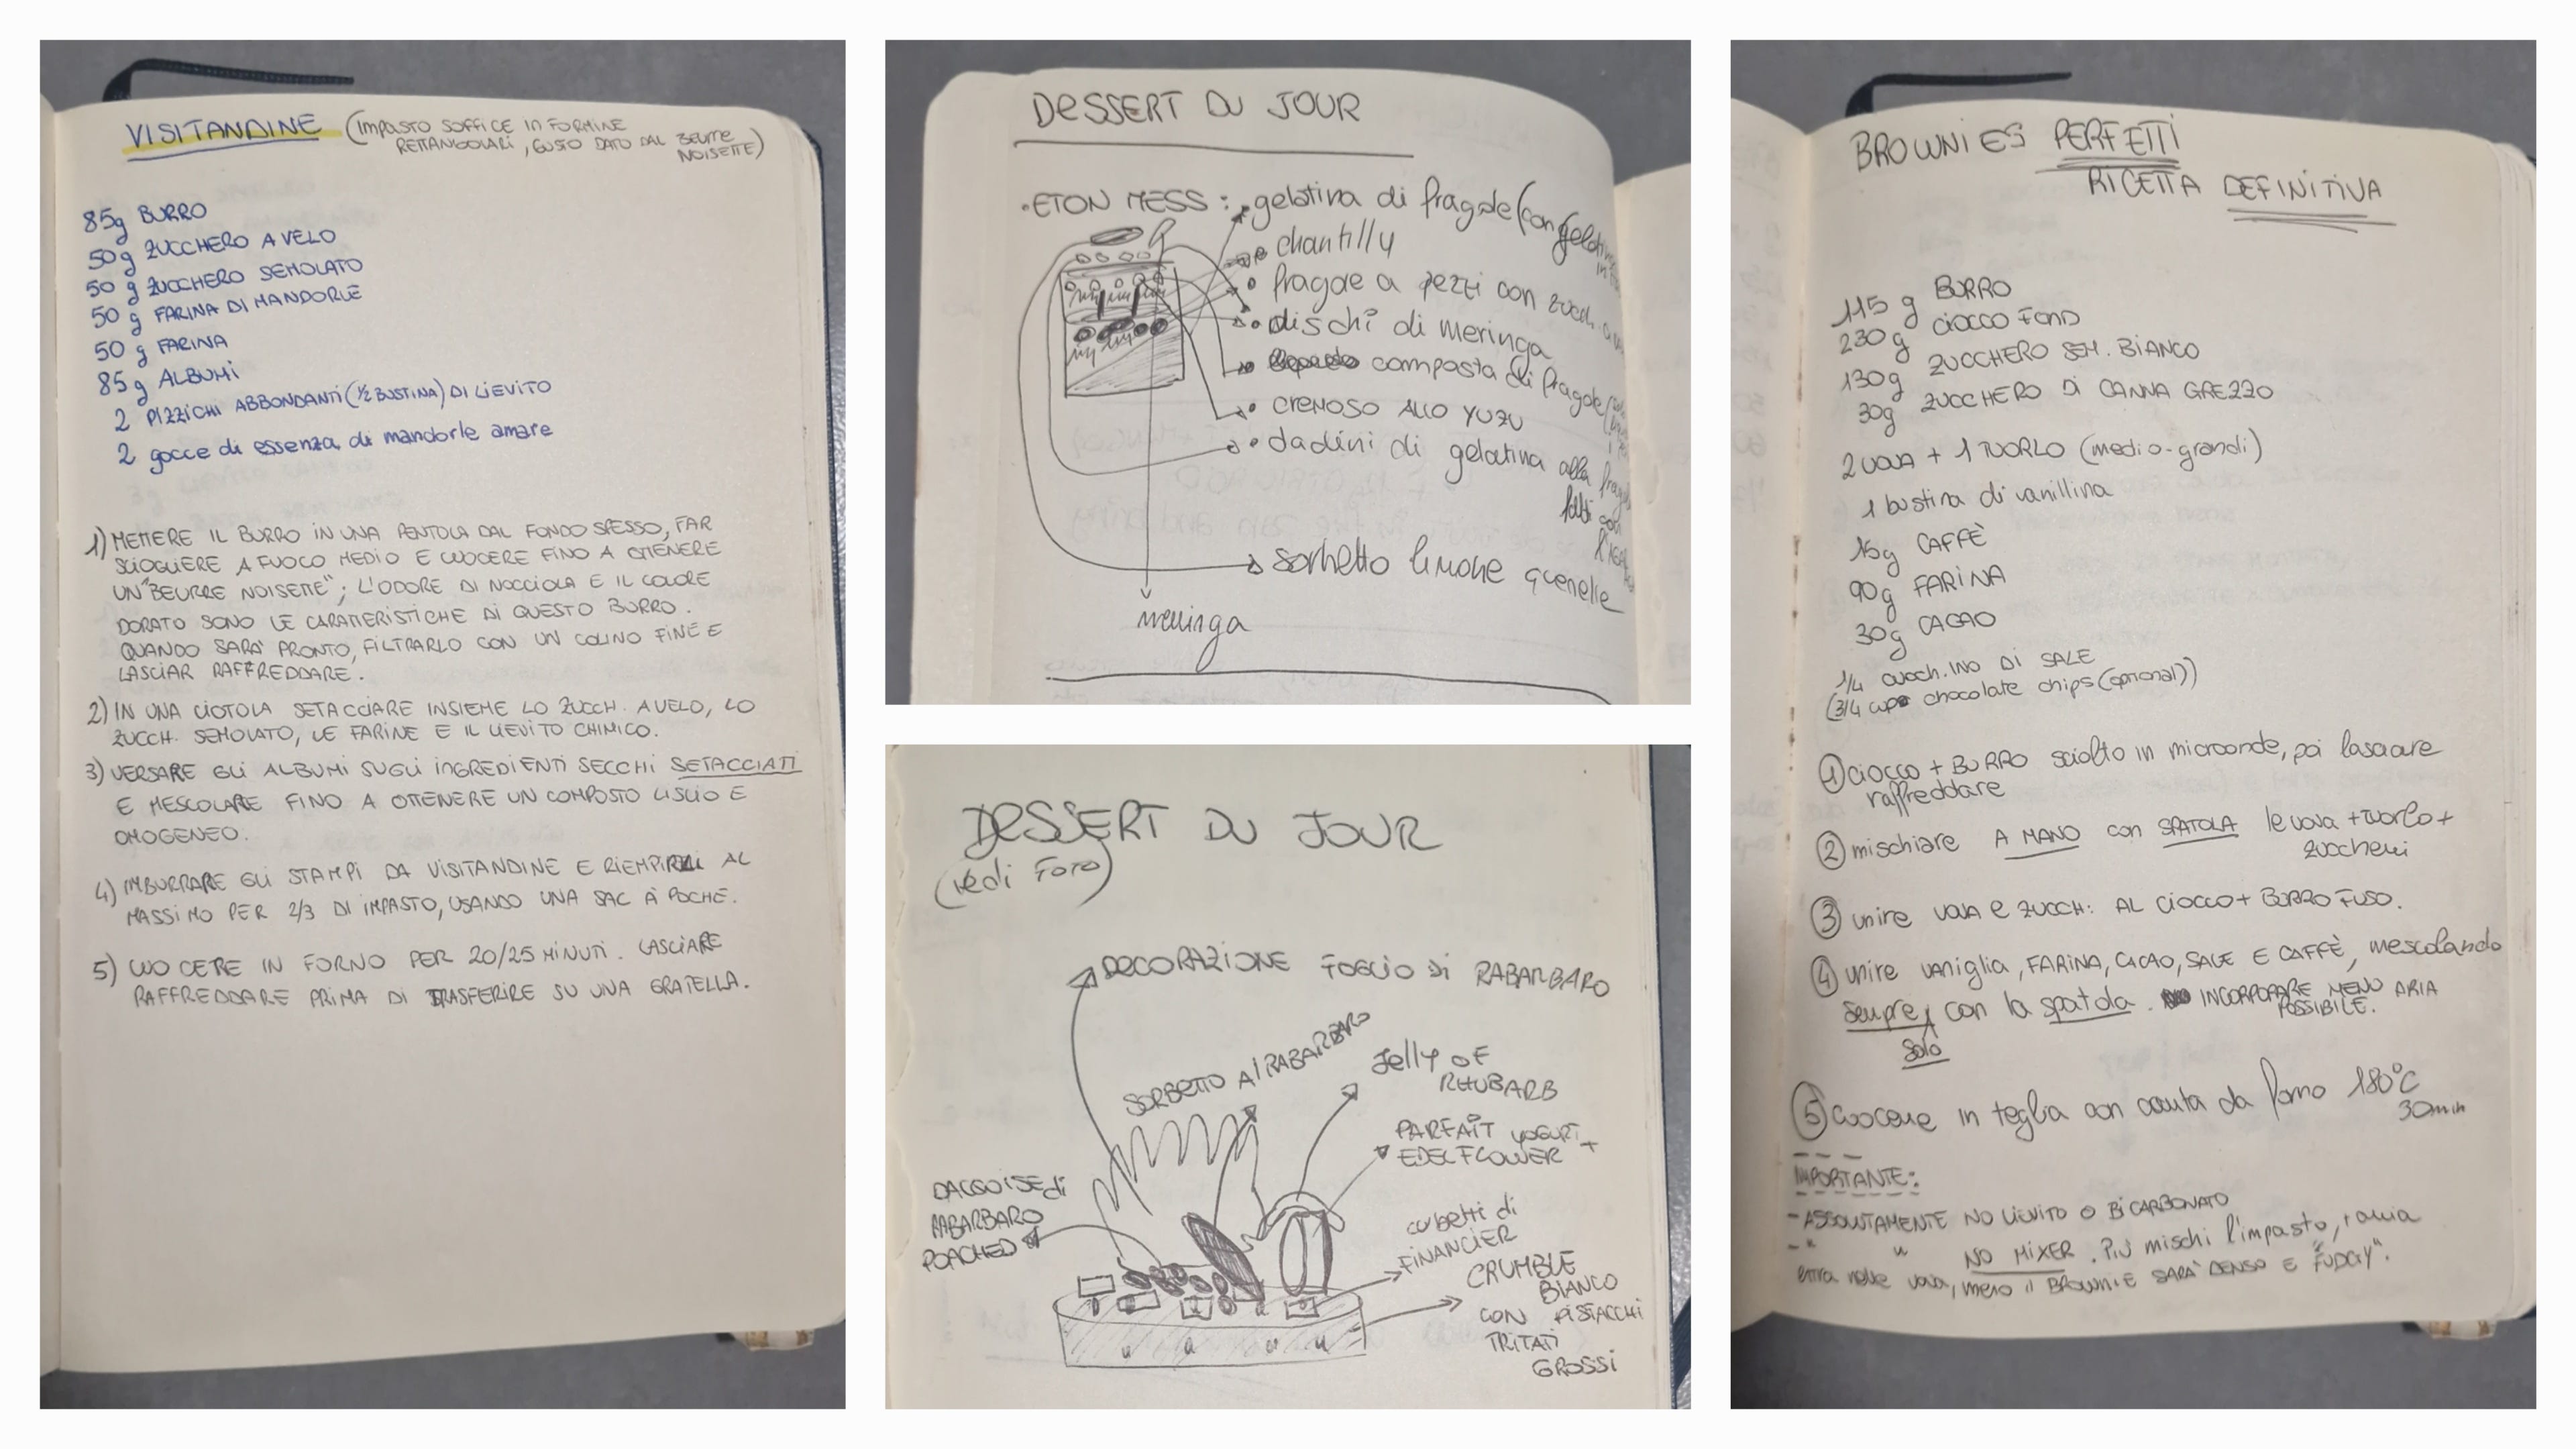 VISITANDINE (IMPASTO SOFFICE IN FORMINE
RETTANGOLARI, GUSTO DATO DAL BEURRE
NOISETTE)
85g BURRO
50g ZUCCHERO A VELO
50 g ZUCCHERO SEMOLATO
50 g FARINA DI MANDORLE
50 g FARINA
85 g ALBUMI
2 PIZZICHI ABBONDANTI (1/2 BUSTINA) DI LIEVITO
2 gocce di essenza di mandorle amare
1) METTERE IL BURRO IN UNA PENTOLA DAL FONDO SPESSO, FAR
SCIOGLIERE A FUOCO MEDIO E CUOCERE FINO A OTTENERE
UN "BEURRE NOISETTE"; L'ODORE DI NOCCIOLA E IL COLORE
DORATO SONO LE CARATTERISTICHE DI QUESTO BURRO.
QUANDO SARA' PRONTO, FILTRARLO CON UN COLINO FINE E
LASCIAR RAFFREDDARE.
2) IN UNA CIOTOLA SETACCIARE INSIEME LO ZUCCH. A VELO, LO
ZUCCH. SEMOLATO, LE FARINE E IL LIEVITO CHIMICO.
3) VERSARE GLI ALBUMI SUGLI INGREDIENTI SECCHI SETACCIATI
E MESCOLARE FINO A OTTENERE UN COMPOSTO LISCIO E
OMOGENEO.
4) IMBURRARE GLI STAMPI DA VISITANDINE E RIEMPIRLI AL
MASSIMO PER 2/3 DI IMPASTO, USANDO UNA SAC À POCHE.
5) CUOCERE IN FORNO PER 20/25 MINUTI. LASCIARE
RAFFREDDARE PRIMA DI TRASFERIRE SU UNA GRATELLA.
DESSERT DU JOUR
• ETON MESS: • gelatina di fragole (con gelatina in
• chantilly
• fragole a pezzi con zucch.
• dischi di meringa
• composta di fragole
• CREMOSO ALLO YUZU
• dadini di gelatina alla
fatti con
sorbetto limone quenelle
meringa
DESSERT DU JOUR
(vedi FOTO)
DECORAZIONE FOGLIO DI RABARBARO
SORBETTO Al RABARBARO
Jelly OF
RHUBARB
PARFAIT YOGURT +
EDELFLOWER
DACQOISE di
RABARBARO
POACHED
cubetti di
FINANCIER
CRUMBLE
BIANCO
CON PISTACCHI
TRITATI
GROSSI
BROWNIES PERFETTI
RICETTA DEFINITIVA
115 g BURRO
230g CIOCCO FOND
130g ZUCCHERO SEM. BIANCO
30g ZUCCHERO DI CANNA GREZZO
2 UOVA + 1 TUORLO (medio-grandi)
1 bustina di vanillina
16g CAFFÈ
90g FARINA
30g CACAO
1/4 cucch.INO DI SALE
(3/4 cup chocolate chips (optional))
1 ciocco + BURRO sciolto in microonde, poi lasciare
raffreddare
2 mischiare A MANO con SPATOLA le uova + tuorlo +
zuccheri
3 unire UOVA e ZUCCH: AL CIOCCO + BURRO FUSO.
4 unire vaniglia, FARINA, CACAO, SALE E CAFFÈ, mescolando
sempre solo con la spatola. INCORPORARE MENO ARIA
POSSIBILE.
5 cuocere in teglia con carta da forno 180°C
30min
IMPORTANTE:
- ASSOLUTAMENTE NO LIEVITO O BICARBONATO
- " " NO MIXER. Più mischi l'impasto, + aria
entra nelle uova, meno il BROWNIE SARÀ DENSO E "FUDGY".